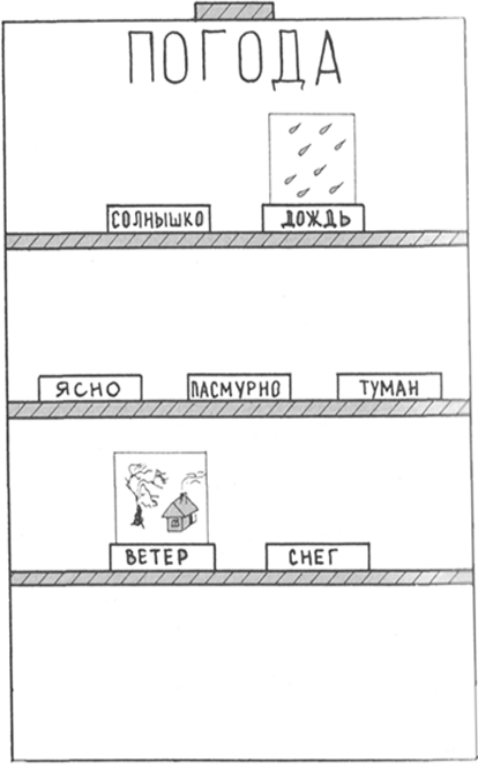 ПОГОДА
СОЛНЫШКО ДОЖДЬ
ЯСНО ПАСМУРНО ТУМАН
ВЕТЕР СНЕГ